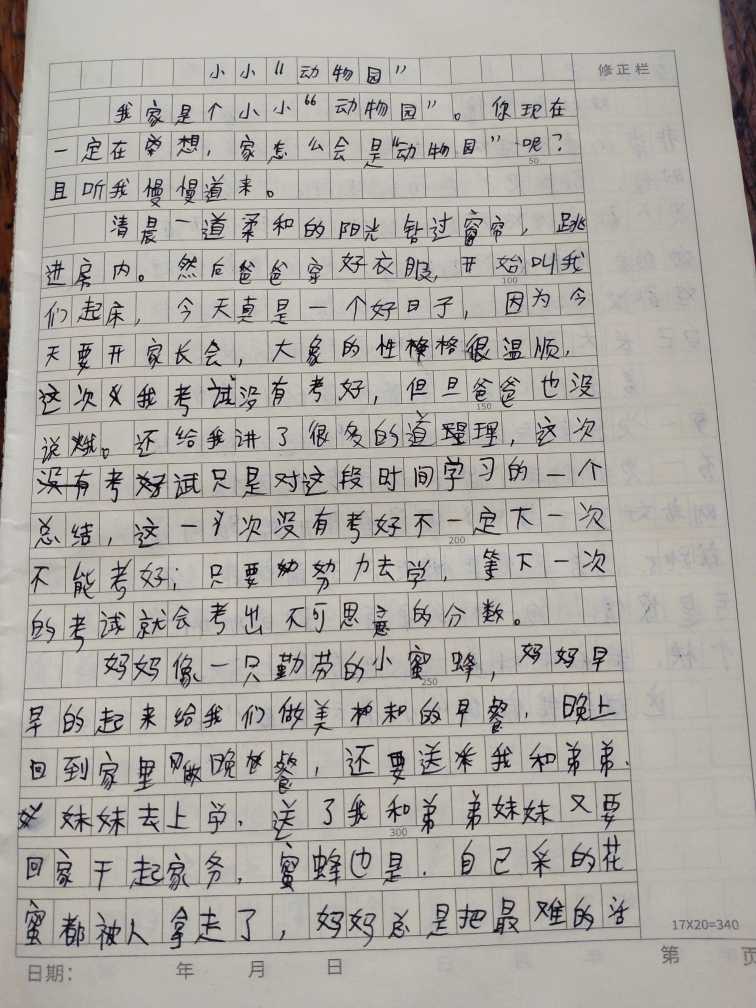 小小“动物园”
修正栏
我家是个小小“动物园”。你现在
一定在想，家怎么会是“动物园”呢？
50
且听我慢慢道来。
清晨一道柔和的阳光钻过窗帘，跳
进房内。然后爸爸穿好衣服，开始叫我
100
们起床，今天真是一个好日子，因为今
天要开家长会，大象的性格很温顺，
这次我考试没有考好，但旦爸爸也没
150
说我。还给我讲了很多的道理，这次
考试只是对这段时间学习的一个
总结，这一次没有考好不一定下一次
200
不能考好；只要努力去学，等下一次
的考试就会考出不可思意的分数。
妈妈像一只勤劳的小蜜蜂，妈妈早
250
早的起来给我们做美和的早餐，晚上
回到家里做晚餐，还要送我和弟弟、
妹妹去上学，送了我和弟弟妹妹又要
300
回家干起家务，蜜蜂也是，自己采的花
蜜都被人拿走了，妈妈总是把最难的活
17X20=340
日期： 年 月 日 第 页